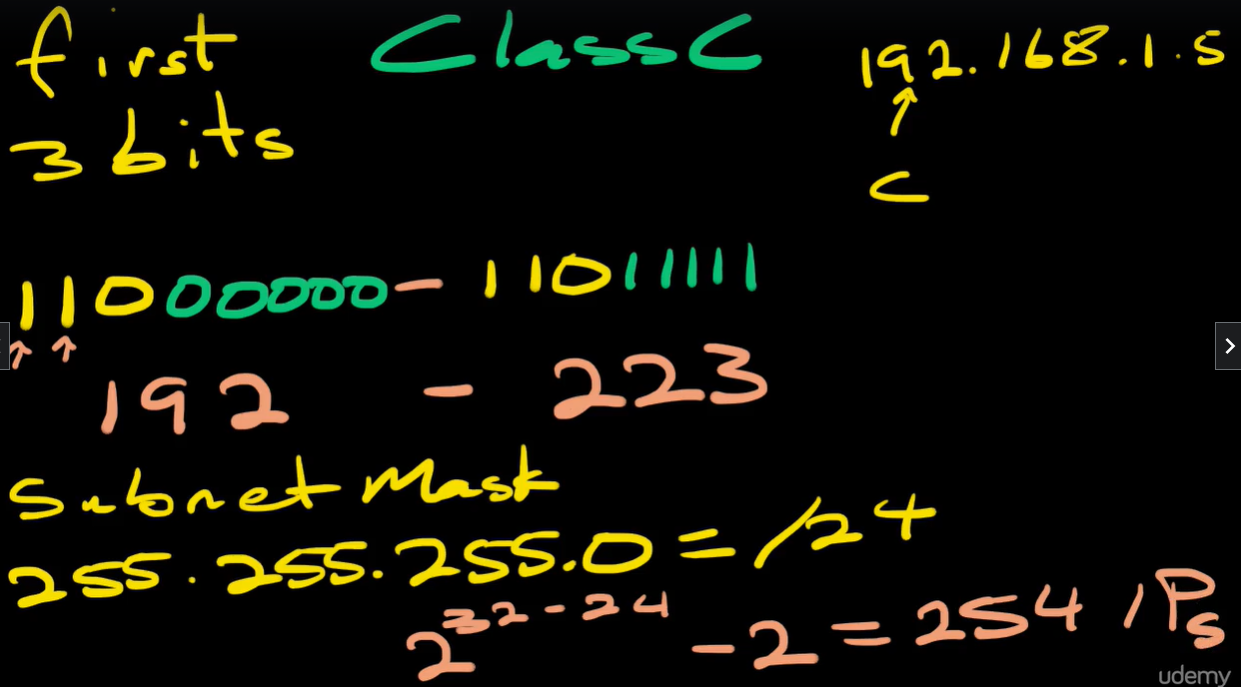 first Class C 192.168.1.5
3 bits
C
11000000 - 11011111
192 - 223
Subnet Mask
255.255.255.0 = /24
2^32-24 - 2 = 254 IPs
udemy